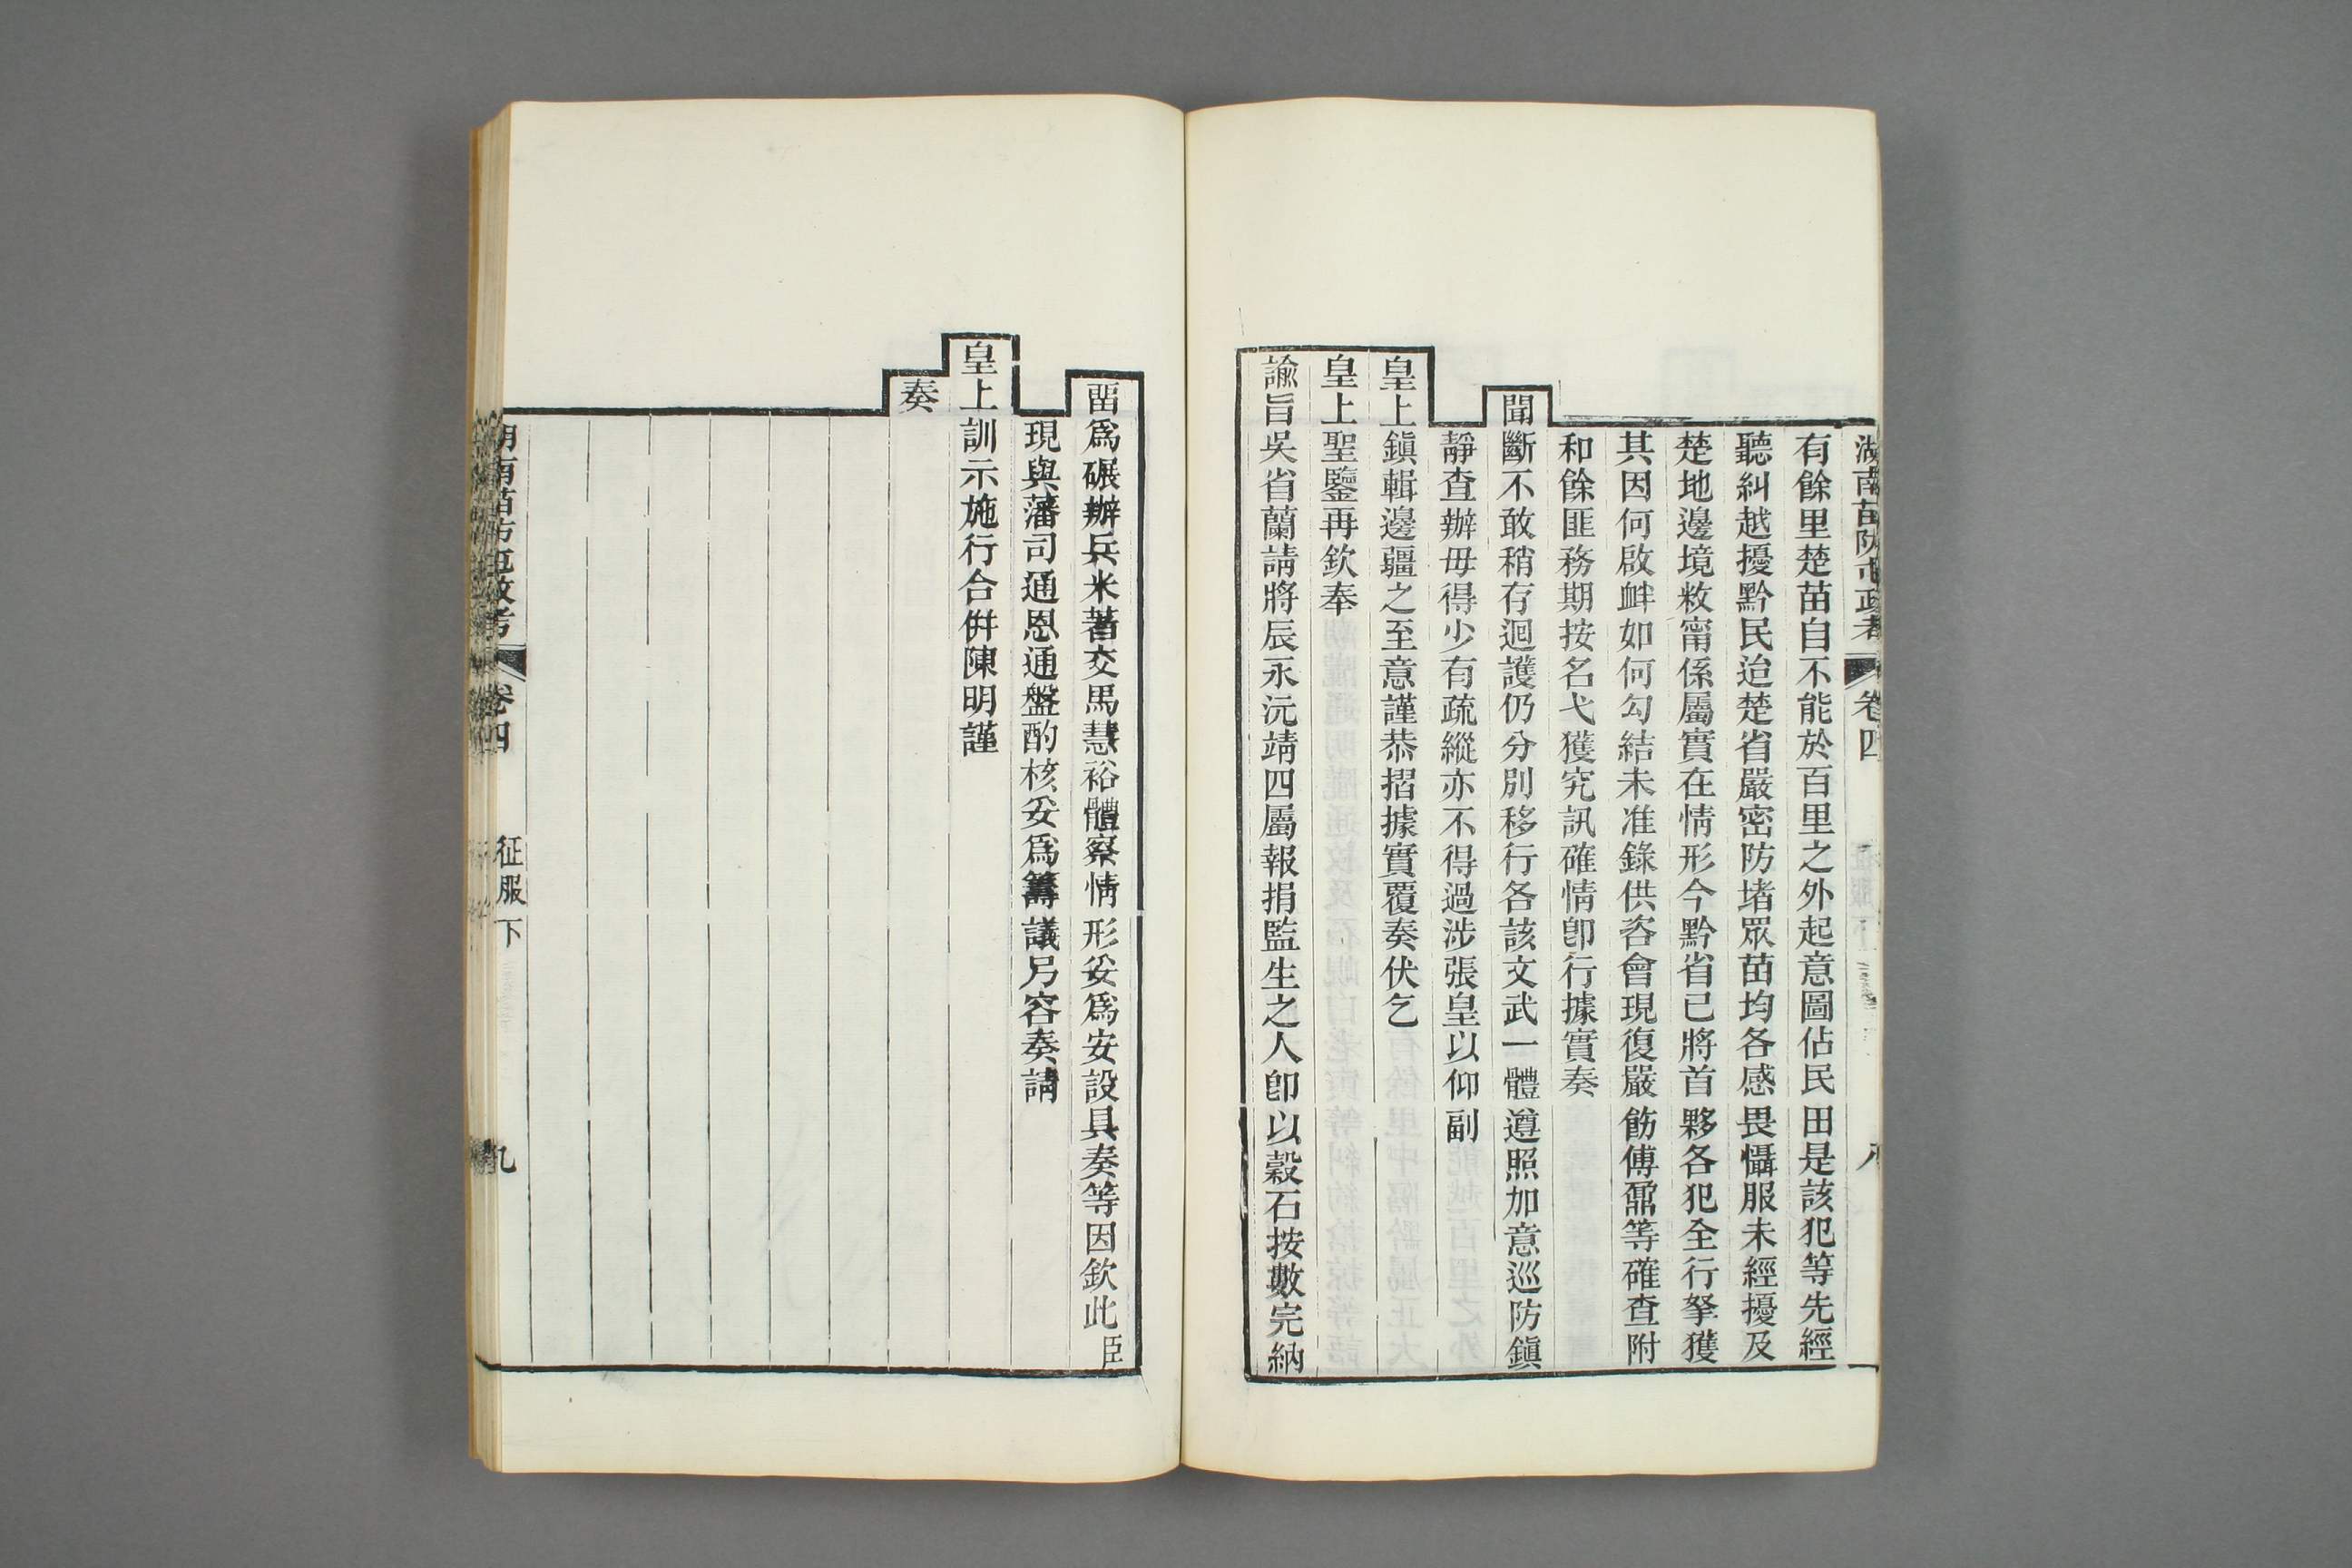 湖南苗防屯政考 卷四 八
有餘里楚苗自不能於百里之外起意圖佔民田是該犯等先經
聽糾越擾黔民迨楚省嚴密防堵眾苗均各感畏懾服未經擾及
楚地邊境敉甯係屬實在情形今黔省已將首夥各犯全行拏獲
其因何啟衅如何勾結未准錄供咨會現復嚴飭傅鼐等確查附
和餘匪務期按名弋獲究訊確情卽行據實奏
聞斷不敢稍存迴護仍分別移行各該文武一體遵照加意巡防鎭
靜查辦毋得少有疏縱亦不得過涉張皇以仰副
皇上鎭輯邊疆之至意謹恭摺據實覆奏伏乞
皇上聖鑒再欽奉
諭旨吳省蘭請將辰永沅靖四屬報捐監生之人卽以穀石按數完納
畱爲碾辦兵米著交馬慧裕體察情形妥爲安設具奏等因欽此臣
現與藩司通恩通盤酌核妥爲籌議另容奏請
皇上訓示施行合併陳明謹
奏
湖南苗防屯政考 卷四 征服下 九